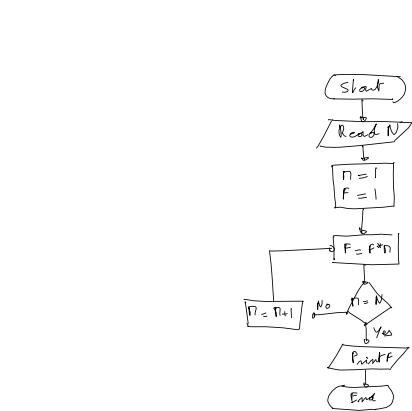 Start
Read N
n = 1
F = 1
F = F*n
n = N
No
n = n+1
Yes
Print F
End